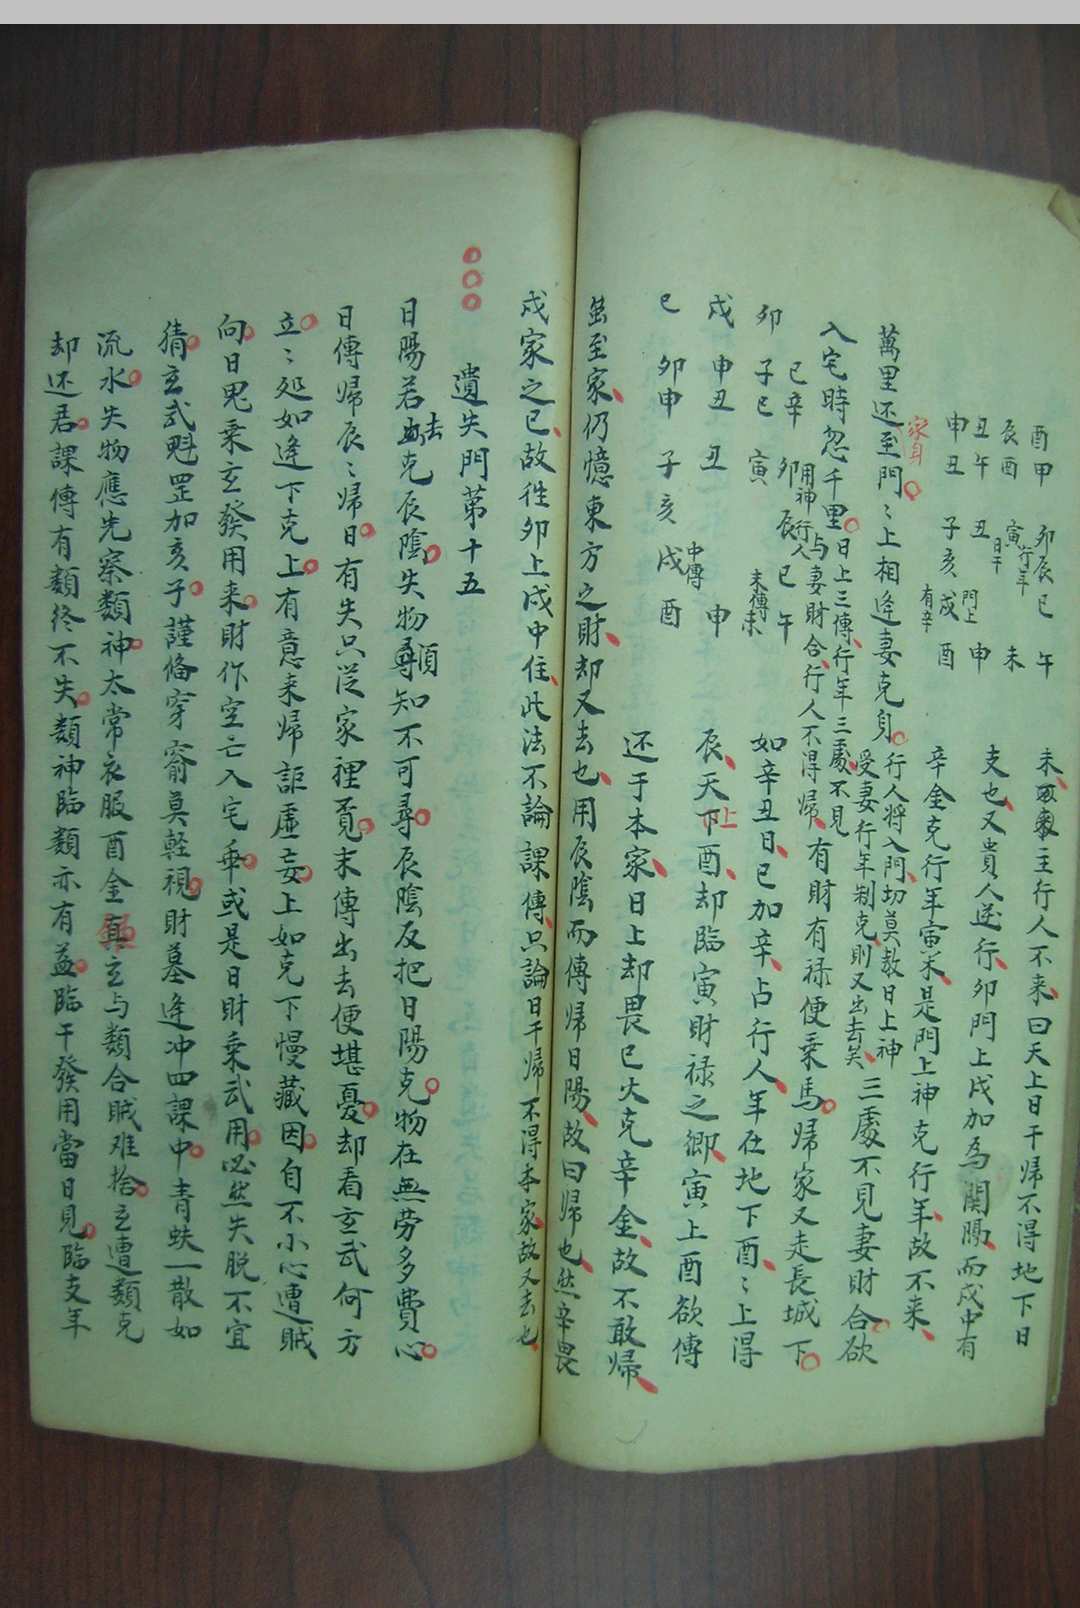 未𠬧來主行人不來曰天上日干歸不得地下日
支也又貴人逆行卯門上戌加為關隔而戌中有
辛金克行年寅木是門上神克行年故不來
酉申 卯辰巳 午
辰酉 寅行年 未
丑午 丑日干 門上 申
申丑 子亥戌 有辛 酉
萬里还至門〻上相逢妻克身行人将入門切莫教日上神受妻行年制克則又出去矣三處不見妻財合欲
家身
入宅時忽千里日上三傳行年三處不見與妻財合行人不得歸有財有禄便乘馬歸家又走長城下
巳辛 卯用神行人 辰 巳 午
卯 子巳 寅 末傳未
戌 申丑 丑 申
巳 卯申 子亥 戌中傳 酉
如辛丑日巳加辛占行人年在地下酉〻上得
辰天下上酉却臨寅財禄之鄉寅上酉欲傳
还于本家日上却畏巳火克辛金故不敢歸
虽至家仍憶東方之財却又去也用辰陰而傳歸日陽故曰歸也然辛畏
戌家之巳故徃卯上戌中住此法不論課傳只論日干歸不得本家故又去也
遺失門第十五
日陽若去克辰陰失物須尋知不可尋辰陰反把日陽克物在無劳多費心
日傳歸辰〻歸日有失只從家裡覓末傳出去便堪憂却看玄武何方
立〻処如逢下克上有意来歸詎虛妄上如克下慢藏因自不小心遭賊
向日鬼乘玄發用来財作空亡入宅乖或是日財乘武用必然失脱不宜
猜玄武魁罡加亥子謹俻穿窬莫輕視財墓逢冲四課中青蚨一散如
流水失物應先察類神太常衣服酉金真玄与類合賊难捨玄遭類克
却还君課傳有類終不失類神臨類亦有益臨干發用當日見臨支年